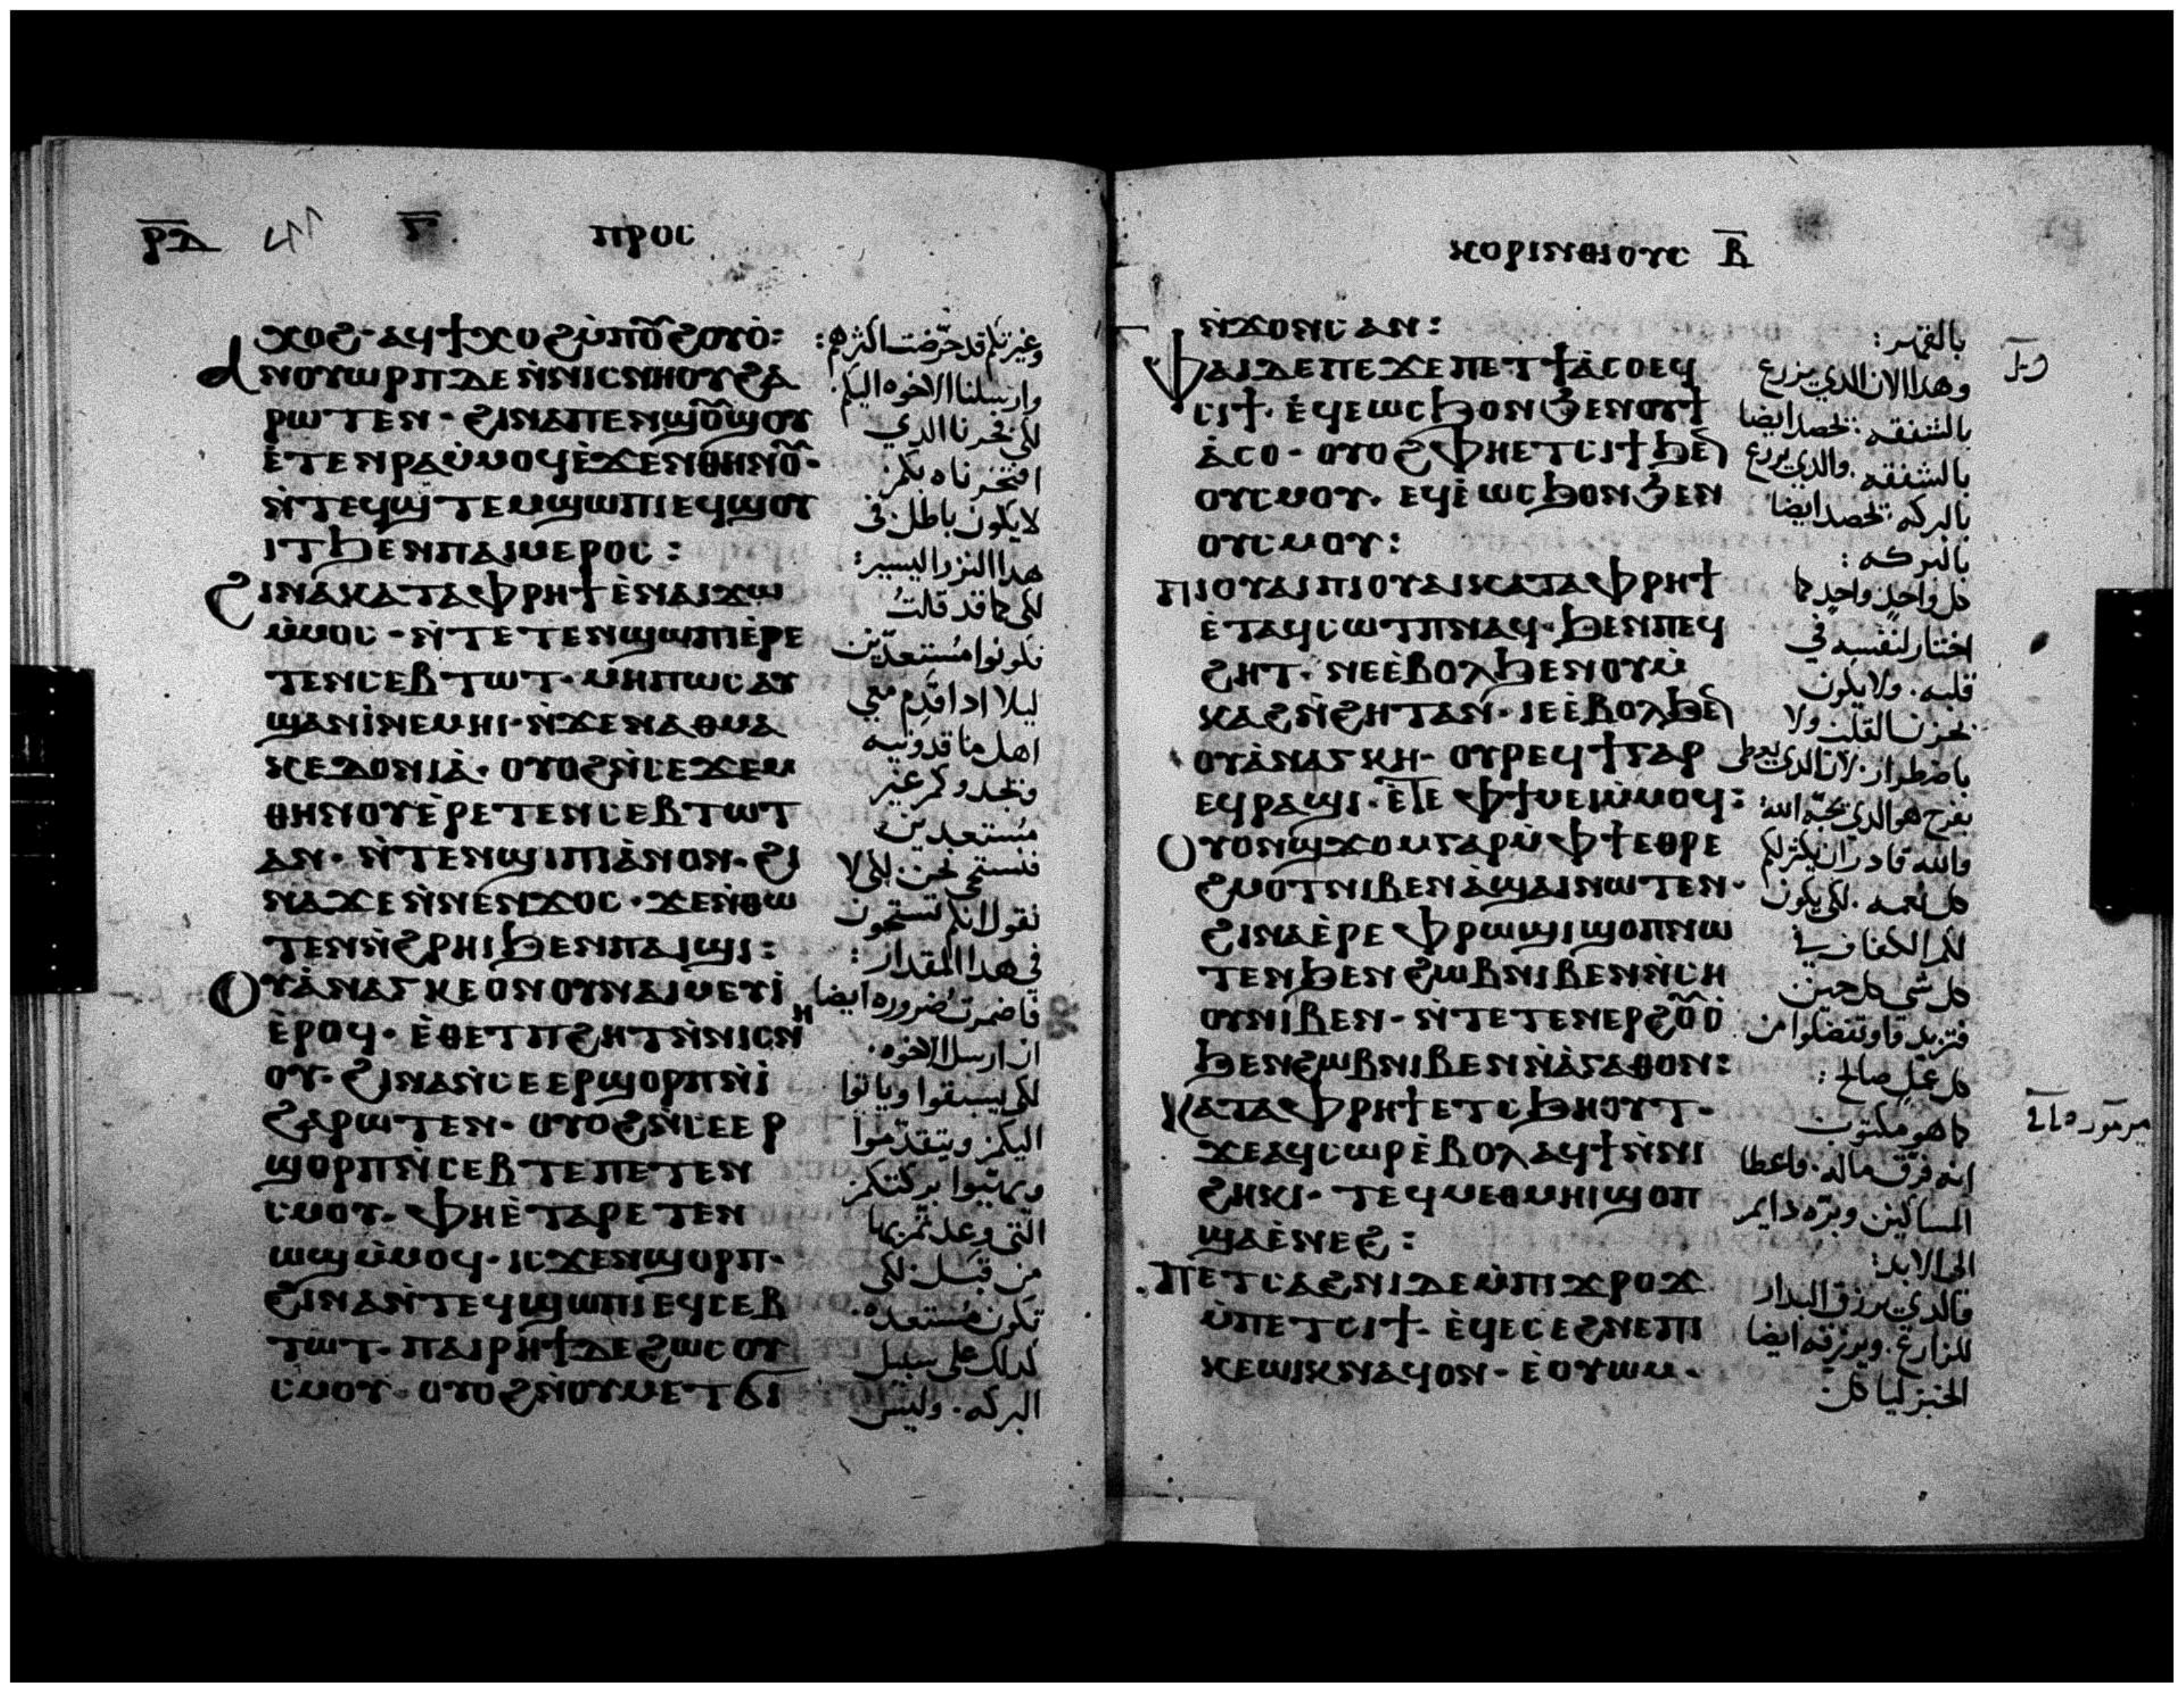 ⲣ̅ⲇ̅ ⲅ̅ ⲡⲣⲟⲥ
ⲭⲟϩ· ⲁϥϯⲭⲟϩ ⲙ̇ⲡⲟ̅ϩⲟⲩⲟ̇:
ⲁⲛⲟⲩⲱⲣⲡ ⲇⲉ ⲛ̇ⲛⲓⲥⲛⲏⲟⲩ ϩⲁ
ⲣⲱⲧⲉⲛ· ϩⲓⲛⲁ ⲡⲉⲛϣⲟ̅ϣⲟⲩ
ⲉ̇ⲧⲉⲛⲣⲁ ⲙ̇ⲙⲟϥ ⲉ̇ϫⲉⲛ ⲑⲏⲛⲟ̅·
ⲛ̇ⲧⲉϥϣ̇ⲧⲉⲙϣⲱⲡⲓ ⲉϥϣⲟⲩ
ⲓⲧ ϧⲉⲛ ⲡⲁⲓⲙⲉⲣⲟⲥ:
ϩⲓⲛⲁ ⲕⲁⲧⲁ ⲫⲣⲏϯ ⲉ̇ⲛⲁⲓϫⲱ
ⲙ̇ⲙⲟⲥ· ⲛ̇ⲧⲉⲧⲉⲛϣⲱⲡⲓ ⲉ̇ⲣⲉ
ⲧⲉⲛⲥⲉⲃⲧⲱⲧ· ⲙⲏⲡⲱⲥ ⲁⲩ
ϣⲁⲛⲓ̇ ⲛⲉⲙⲏⲓ· ⲛ̇ϫⲉ ⲛⲁ ⲑⲙⲁ
ⲕⲉⲇⲟⲛⲓⲁ̇· ⲟⲩⲟϩ ⲛ̇ⲥⲉϫⲉⲙ
ⲑⲏⲛⲟⲩ ⲉ̇ⲣⲉⲧⲉⲛⲥⲉⲃⲧⲱⲧ
ⲁⲛ· ⲛ̇ⲧⲉⲛϣⲓⲡⲓ ⲁ̇ⲛⲟⲛ· ϩⲓ
ⲛⲁ ϫⲉ ⲛ̇ⲛⲉⲛϫⲟⲥ· ϫⲉ ⲛ̇ⲑⲱ
ⲧⲉⲛ ⲛ̇ϩⲣⲏⲓ ϧⲉⲛ ⲡⲁⲓϣⲓ:
ⲟⲩⲁ̇ⲛⲁⲅⲕⲉⲟⲛ ⲟⲩⲛ ⲁⲓⲙⲉⲩⲓ̇
ⲉ̇ⲣⲟϥ· ⲉ̇ⲑⲉⲧ ⲡϩⲏⲧ ⲛ̇ⲛⲓⲥⲛⲏ
ⲟⲩ· ϩⲓⲛⲁ ⲛ̇ⲥⲉⲉⲣϣⲟⲣⲡ ⲛ̇ⲓ̇
ϩⲁⲣⲱⲧⲉⲛ· ⲟⲩⲟϩ ⲛ̇ⲥⲉⲉⲣ
ϣⲟⲣⲡ ⲛ̇ⲥⲉⲃⲧⲉ ⲡⲉⲧⲉⲛ
ⲥⲙⲟⲩ· ⲫⲏ ⲉ̇ⲧⲁⲣⲉⲧⲉⲛ
ⲱϣ ⲙ̇ⲙⲟϥ· ⲓⲥϫⲉⲛ ϣⲟⲣⲡ·
ϩⲓⲛⲁ ⲛ̇ⲧⲉϥϣⲱⲡⲓ ⲉϥⲥⲉⲃ
ⲧⲱⲧ· ⲡⲁⲓⲣⲏϯ ⲇⲉ ϩⲱⲥ ⲟⲩ
ⲥⲙⲟⲩ· ⲟⲩⲟϩ ⲛ̇ⲟⲩⲙⲉⲧϭⲓ
وغيرتكم قد حرّضت اكثرهم:
وارسلنا الاخوه اليكم.
لكى فخرنا الدي
افتخرناه بكم
لا يكون باطل فى
هدا النزر اليسير:
لكى كما قد قلتُ
تكونوا مُستعدّين
ليلا ادا قدِم معي
اهل ماقدونيه
وتجدوكم غير
مُستعدين
فنستحى نحن لكى لا
نقول انكم تستحون
في هدا المقدار:
فاضمرت ضروره ايضا
ان ارسل الاخوه.
لكى يسبقوا وياتوا
اليكم ويتقدّموا
ويهيّوا بركتكم
التي وعدتم بها
من قبل لكى
تكون مُستعده.
كدلك على سبيل
البركه. وليس
ⲕⲟⲣⲓⲛⲑⲓⲟⲩⲥ ⲃ̅
ⲛ̇ϫⲟⲛⲥ ⲁⲛ:
ⲫⲁⲓ ⲇⲉ ⲡⲉ ϫⲉ ⲡⲉⲧϯⲁ̇ⲥⲟ ⲉϥ
ⲥⲓϯ· ⲉ̇ϥⲉⲱⲥϧ ⲟⲛ ϧⲉⲛ ⲟⲩϯ
ⲁ̇ⲥⲟ· ⲟⲩⲟϩ ⲫⲏ ⲉⲧⲥⲓϯ ϧⲉ̅
ⲟⲩⲥⲙⲟⲩ· ⲉϥⲉ̇ⲱⲥϧ ⲟⲛ ϧⲉⲛ
ⲟⲩⲥⲙⲟⲩ:
ⲡⲓⲟⲩⲁⲓ ⲡⲓⲟⲩⲁⲓ ⲕⲁⲧⲁ ⲫⲣⲏϯ
ⲉ̇ⲧⲁϥⲥⲱⲧⲡ ⲛⲁϥ· ϧⲉⲛ ⲡⲉϥ
ϩⲏⲧ· ⲛⲉ ⲉ̇ⲃⲟⲗ ϧⲉⲛ ⲟⲩⲙ̇
ⲕⲁϩ ⲛ̇ϩⲏⲧ ⲁⲛ· ⲓⲉ ⲉ̇ⲃⲟⲗ ϧⲉ̅
ⲟⲩⲁ̇ⲛⲁⲅⲕⲏ· ⲟⲩⲣⲉϥϯ ⲅⲁⲣ
ⲉϥⲣⲁϣⲓ· ⲉ̅ⲧ̅ⲉ ⲫϯ ⲙⲉⲓ ⲙ̇ⲙⲟϥ:
ⲟⲩⲟⲛ ϣϫⲟⲙ ⲅⲁⲣ ⲙ̇ⲫϯ ⲉⲑⲣⲉ
ϩⲙⲟⲧ ⲛⲓⲃⲉⲛ ⲁ̇ϣⲁⲓ ⲛⲱⲧⲉⲛ·
ϩⲓⲛⲁ ⲉ̇ⲣⲉ ⲫⲣⲱϣⲓ ϣⲟⲡ ⲛⲱ
ⲧⲉⲛ ϧⲉⲛ ϩⲱⲃ ⲛⲓⲃⲉⲛ ⲛ̇ⲥⲏ
ⲟⲩ ⲛⲓⲃⲉⲛ· ⲛ̇ⲧⲉⲧⲉⲛⲉⲣϩⲟ̅ⲟ̇
ϧⲉⲛ ϩⲱⲃ ⲛⲓⲃⲉⲛ ⲛ̇ⲁ̇ⲅⲁⲑⲟⲛ:
ⲕⲁⲧⲁ ⲫⲣⲏϯ ⲉⲧⲥϧⲏⲟⲩⲧ·
ϫⲉ ⲁϥⲥⲱⲣ ⲉ̇ⲃⲟⲗ ⲁϥϯ ⲛ̇ⲛⲓ
ϩⲏⲕⲓ· ⲧⲉϥⲙⲉⲑⲙⲏⲓ ϣⲟⲡ
ϣⲁ ⲉ̇ⲛⲉϩ:
ⲡⲉⲧⲥⲁϩⲛⲓ ⲇⲉ ⲙ̇ⲡⲓϫⲣⲟϫ
ⲙ̇ⲡⲉⲧⲥⲓϯ· ⲉ̇ϥⲉⲥⲉϩⲛⲉ ⲡⲓ
ⲕⲉⲱⲓⲕ ⲛⲁϥ ⲟⲛ· ⲉ̇ⲟⲩⲱⲙ·
بالقهر:
وهدا الان الدي يزرع
بالشفقه. تحصد ايضا
بالشفقه. والدي يزرع
بالبركه. تحصد ايضا
بالبركه:
كل واحدٍ واحدٍ كما
اختار لنفسه في
قلبه. ولا يكون
بحزن القلب ولا
باضطرار. لان الدي يعطى
بفرح هو الدي يحبّه الله:
والله قادر ان يكثر لكم
كل نعمه. لكى يكون
لكم الكفاف في
كل شي كل حين
فتزيد قا وتتفضلوا من
كل عملٍ صالح:
كما هو مكتوب
انه فرّق ماله. واعطا
المساكين وبرّه دايم
الى الابد:
فالدي يرزق البدار
للزارع. ويرزقه ايضا
الخبز لياكل